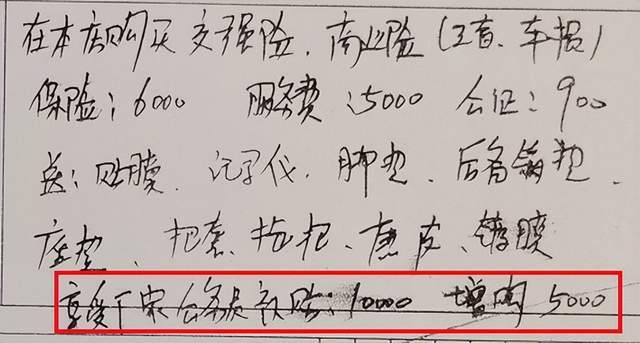 在本店购买交强险、商业险(三者、车损)
保险:6000 服务费:5000 公证:900
送:贴膜、记录仪、脚垫、后备箱垫、
座垫、把套、拖把、鹿皮、镀膜
享受厂家公务员补贴:10000 增购 5000